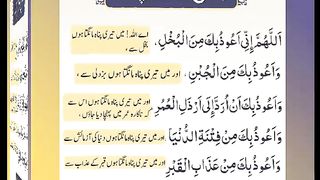 اَللّٰهُمَّ اِنِّی اَعُوْذُ بِكَ مِنَ الْبُخْلِ،
اے اللہ! میں تیری پناہ مانگتا ہوں
بخل سے،
وَاَعُوْذُ بِكَ مِنَ الْجُبْنِ،
اور میں تیری پناہ مانگتا ہوں بزدلی سے،
وَاَعُوْذُ بِكَ اَنْ اُرَدَّ اِلٰی اَرْذَلِ الْعُمُرِ
اور میں تیری پناہ مانگتا ہوں اس سے
کہ ناکارہ عمر میں پہنچا دیا جاؤں،
وَاَعُوْذُ بِكَ مِنْ فِتْنَةِ الدُّنْیَا،
اور میں تیری پناہ مانگتا ہوں دنیا کی آزمائش سے
وَاَعُوْذُ بِكَ مِنْ عَذَابِ الْقَبْرِ
اور میں تیری پناہ مانگتا ہوں قبر کے عذاب سے